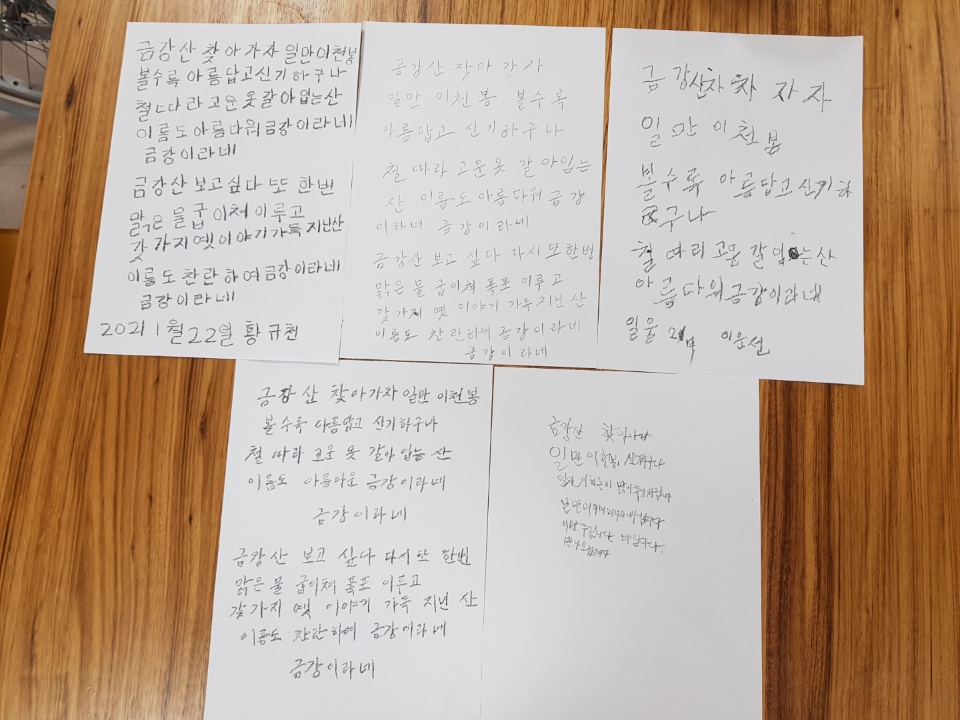 금강산 찾아가자 일만이천봉
볼수록 아름답고신기하구나
철따라고운옷갈아입는산
이름도아름다워금강이라네
금강이라네
금강산보고싶다 또 한번
맑은물굽이쳐이루고
갖가지옛이야기가득지닌산
이름도찬란하여금강이라네
금강이라네
2021 1월 22일 황규천
금강산 찾아가자
일만 이천봉 볼수록
아름답고 신기하구나
철 따라 고운옷 갈아입는
산 이름도 아름다워 금강
이라네 금강이라네
금강산 보고 싶다 다시 또한번
맑은 물 굽이쳐 폭포 이루고
갖가지 옛 이야기 가득 지닌 산
이름도 찬란하며 금강이라네
금강이라네
금강산차 차 자 자
일만이천봄
볼수록 아름답고신기하
구나
철따리고운갈입는산
아름다워금강이라네
이운선
금강산 찾아가자 일만 이천봉
볼수록 아름답고 신기하구나
철 따라 고운 옷 갈아 입는 산
이름도 아름다운 금강이라네
금강이라네
금강산 보고 싶다 다시 또 한번
맑은 물 굽이쳐 폭포 이루고
갖가지 옛 이야기 가득 지닌 산
이름도 찬란하여 금강이라네
금강이라네
금강산
일만이